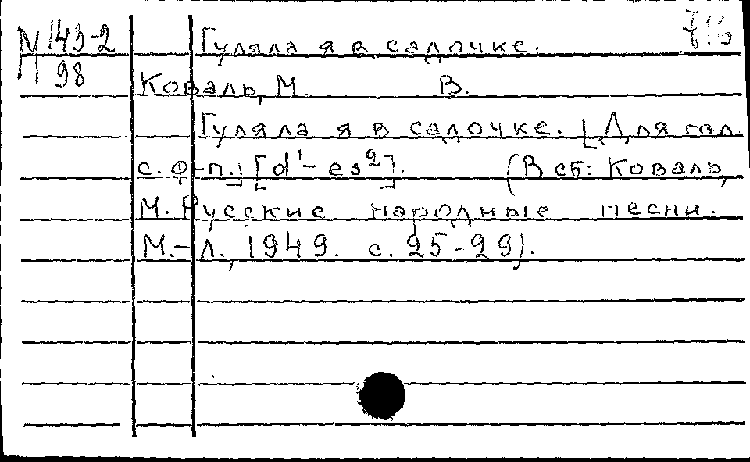 М 143-2 Гуляла я в садочке.
98 Коваль, М. В.
Гуляла я в садочке. [Для гол.
с ф-п.] [d¹ - es²]. (В сб: Коваль,
М. Русские народные песни.
М.-Л., 1949. с. 25-29).